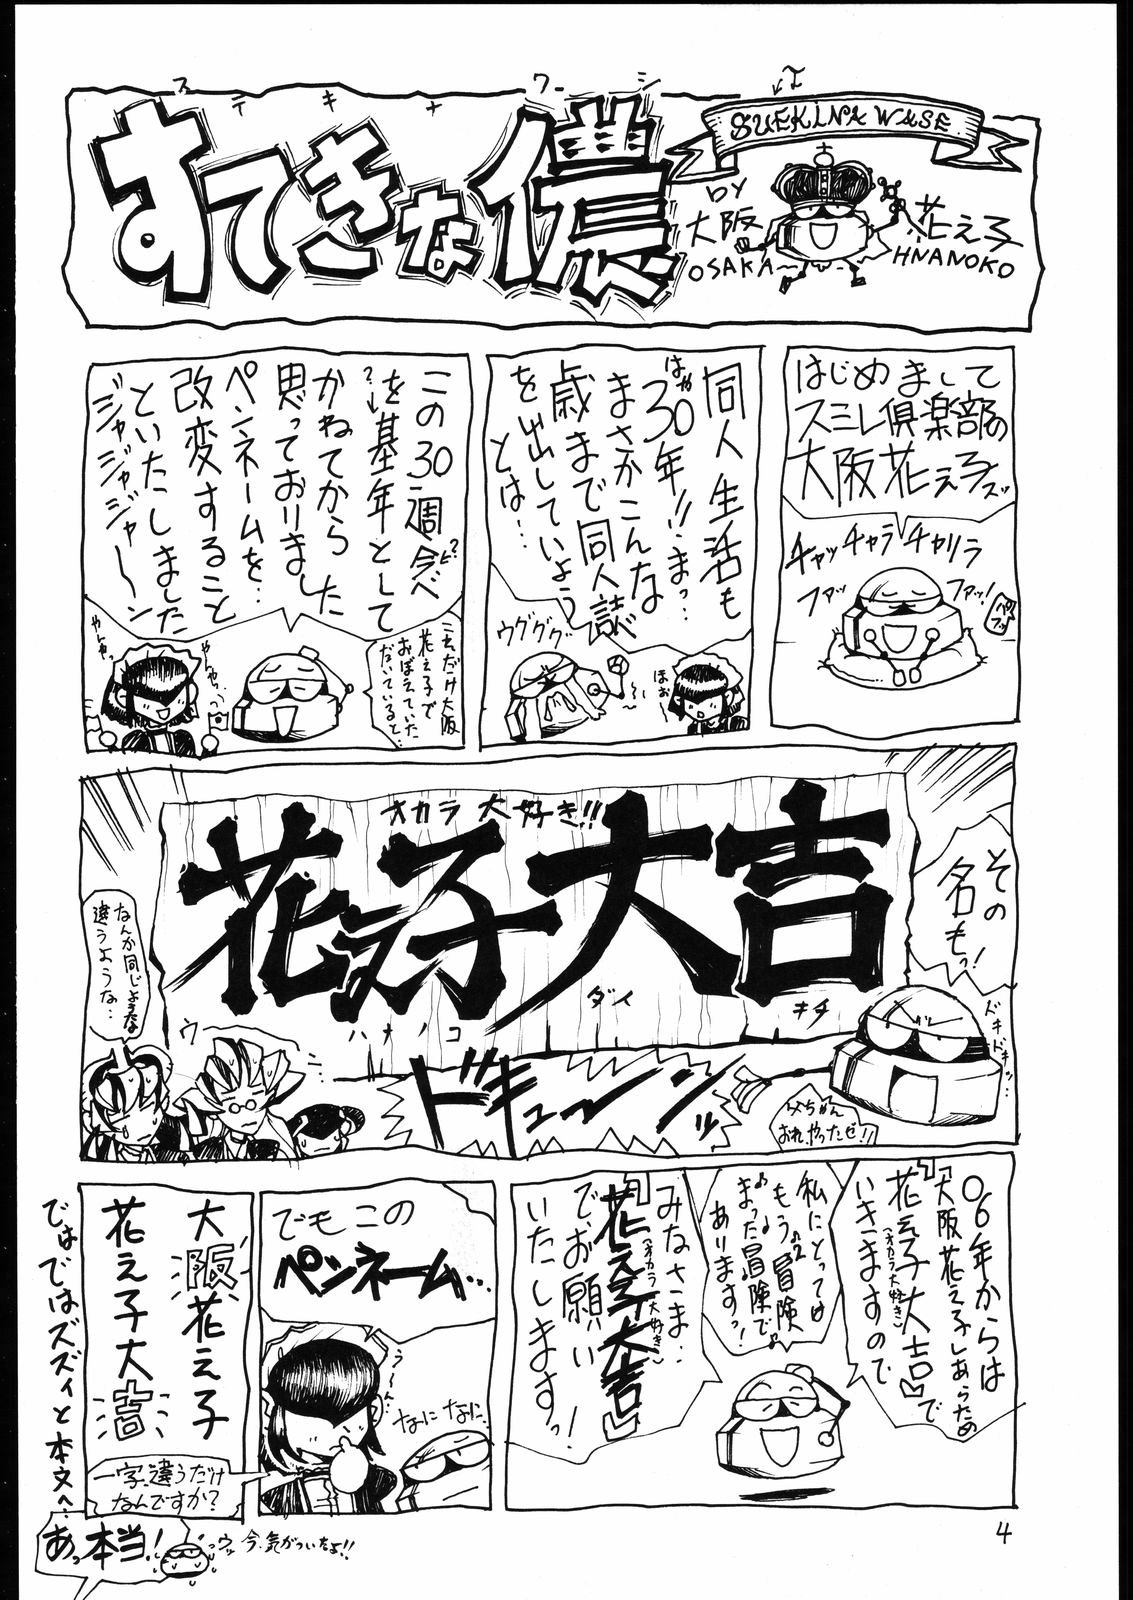 ステキナワシ
すてきな儂
SUEKINA WASE
BY
大阪
OSAKA
花え子
HNANOKO
はじめまして
スミレ倶楽部の
大阪花え子
チャッチャラチャリラ
ファッ
ファッ!
同人生活も
はや
30年!!まっ…
まさかこんな
歳まで同人誌
を出していよう
とは…
ウグググ
ほぉ
この30週今べ
?ピ
?
を基年として
かねてから
思っておりました
ペンネームを…
改変すること
といたしました
ジャジャジャーン
これだけ大阪
花え子で
おぼえていた
だいていると…
やんやっ
やんやっ
その
名もっ!
オカラ大好き!!
花え子大吉
ハナノコ
ダイ
キチ
なんか同じような
違うような…
ウ
ニ…
ドキューンッ
ドキドキッ…
父ちゃん
おれ、やったぜ!!
06年からは
『大阪花え子』あらため
『花え子大吉』で
(オカラ大好き)
いきますので
私にとっては
もう冒険
まった冒険で
ありますっ!
みなさま…
『花え子大吉』
(オカラ大好き)
でお願い
いたしますっ!
でもこの
ペンネーム…
うーん…
なになに
大阪花え子
花え子大吉
一字違うだけ
なんですか?
ではではズズィと本文へ…
あっ本当!
ウッ
今、気がついたよ!!
4